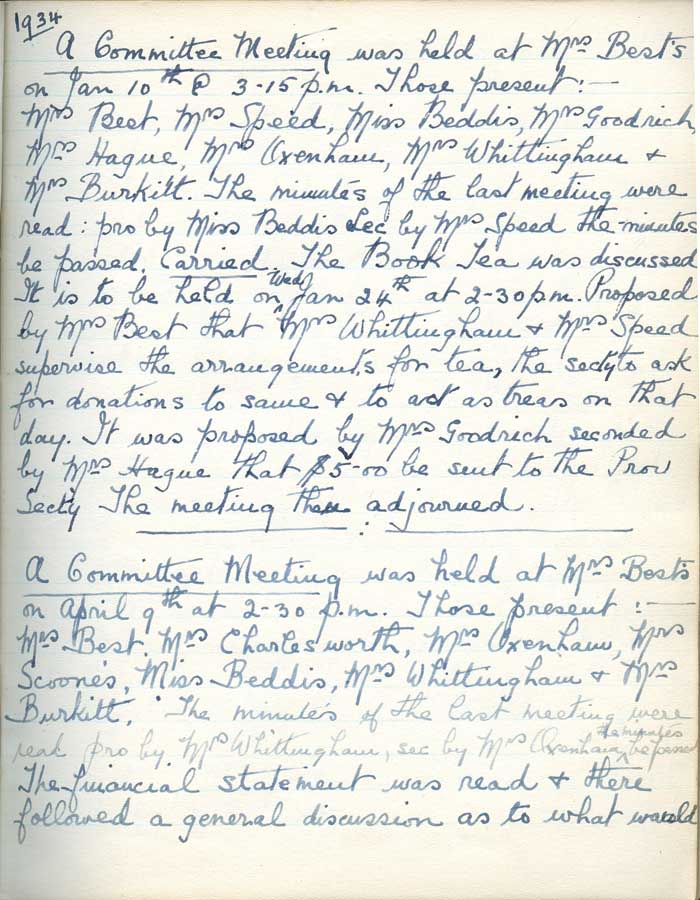 1934
A Committee Meeting was held at Mrs Best's
on Jan 10th @ 3-15 p.m. Those present :—
Mrs Best, Mrs Speed, Miss Beddis, Mrs Goodrich
Mrs Hague, Mrs Oxenham, Mrs Whittingham &
Mrs Burkitt. The minutes of the last meeting were
read : pro by Miss Beddis Sec by Mrs Speed the minutes
be passed. Carried. The Book Tea was discussed
It is to be held on Wed Jan 24th at 2-30 p.m. Proposed
by Mrs Best that Mrs Whittingham & Mrs Speed
supervise the arrangements for tea, the secty to ask
for donations to same & to act as treas on that
day. It was proposed by Mrs Goodrich seconded
by Mrs Hague that $5-00 be sent to the Prov
Secty The meeting then adjourned.
A Committee Meeting was held at Mrs Best's
on April 9th at 2-30 p.m. Those present :—
Mrs Best, Mrs Charlesworth, Mrs Oxenham, Mrs
Scoones, Miss Beddis, Mrs Whittingham & Mrs
Burkitt. The minutes of the last meeting were
read pro by Mrs Whittingham, sec by Mrs Oxenham, the minutes be passed
The financial statement was read & there
followed a general discussion as to what would